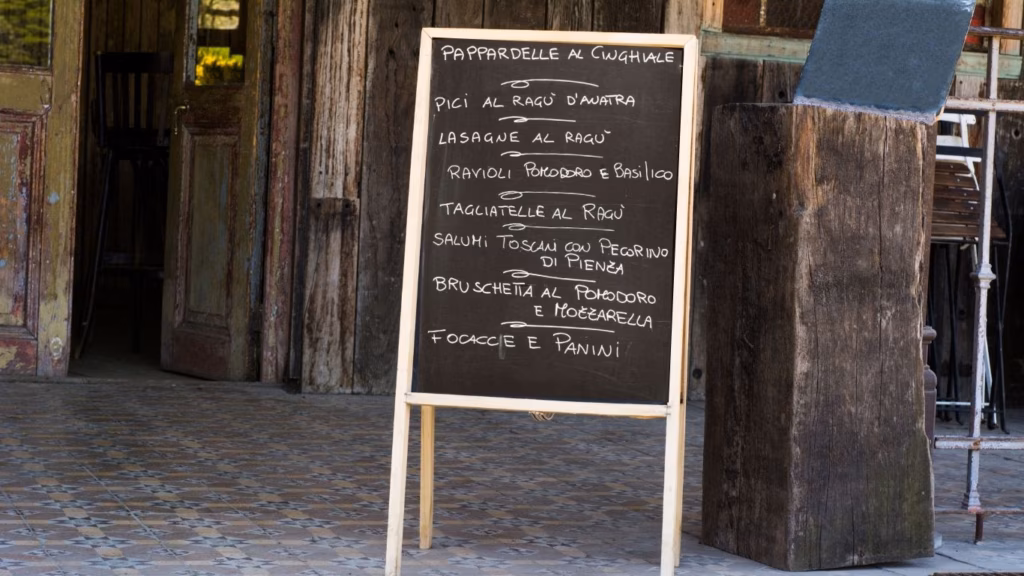 PAPPARDELLE AL CINGHIALE
PICI AL RAGÙ D'ANATRA
LASAGNE AL RAGÙ
RAVIOLI POMODORO E BASILICO
TAGLIATELLE AL RAGÙ
SALUMI TOSCANI CON PECORINO
DI PIENZA
BRUSCHETTA AL POMODORO
E MOZZARELLA
FOCACCIE E PANINI